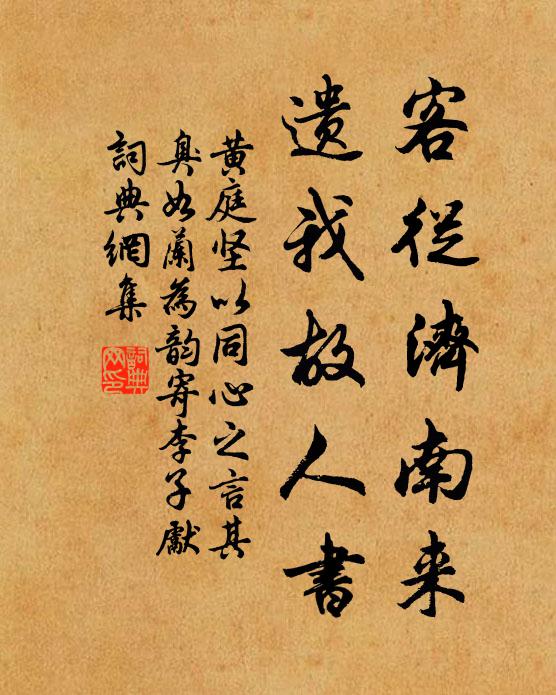 客從濟南来
遺我故人書
黄庭坚以同心之言其
臭如蘭為韵寄李子獻
詞典網集
詞典
网印